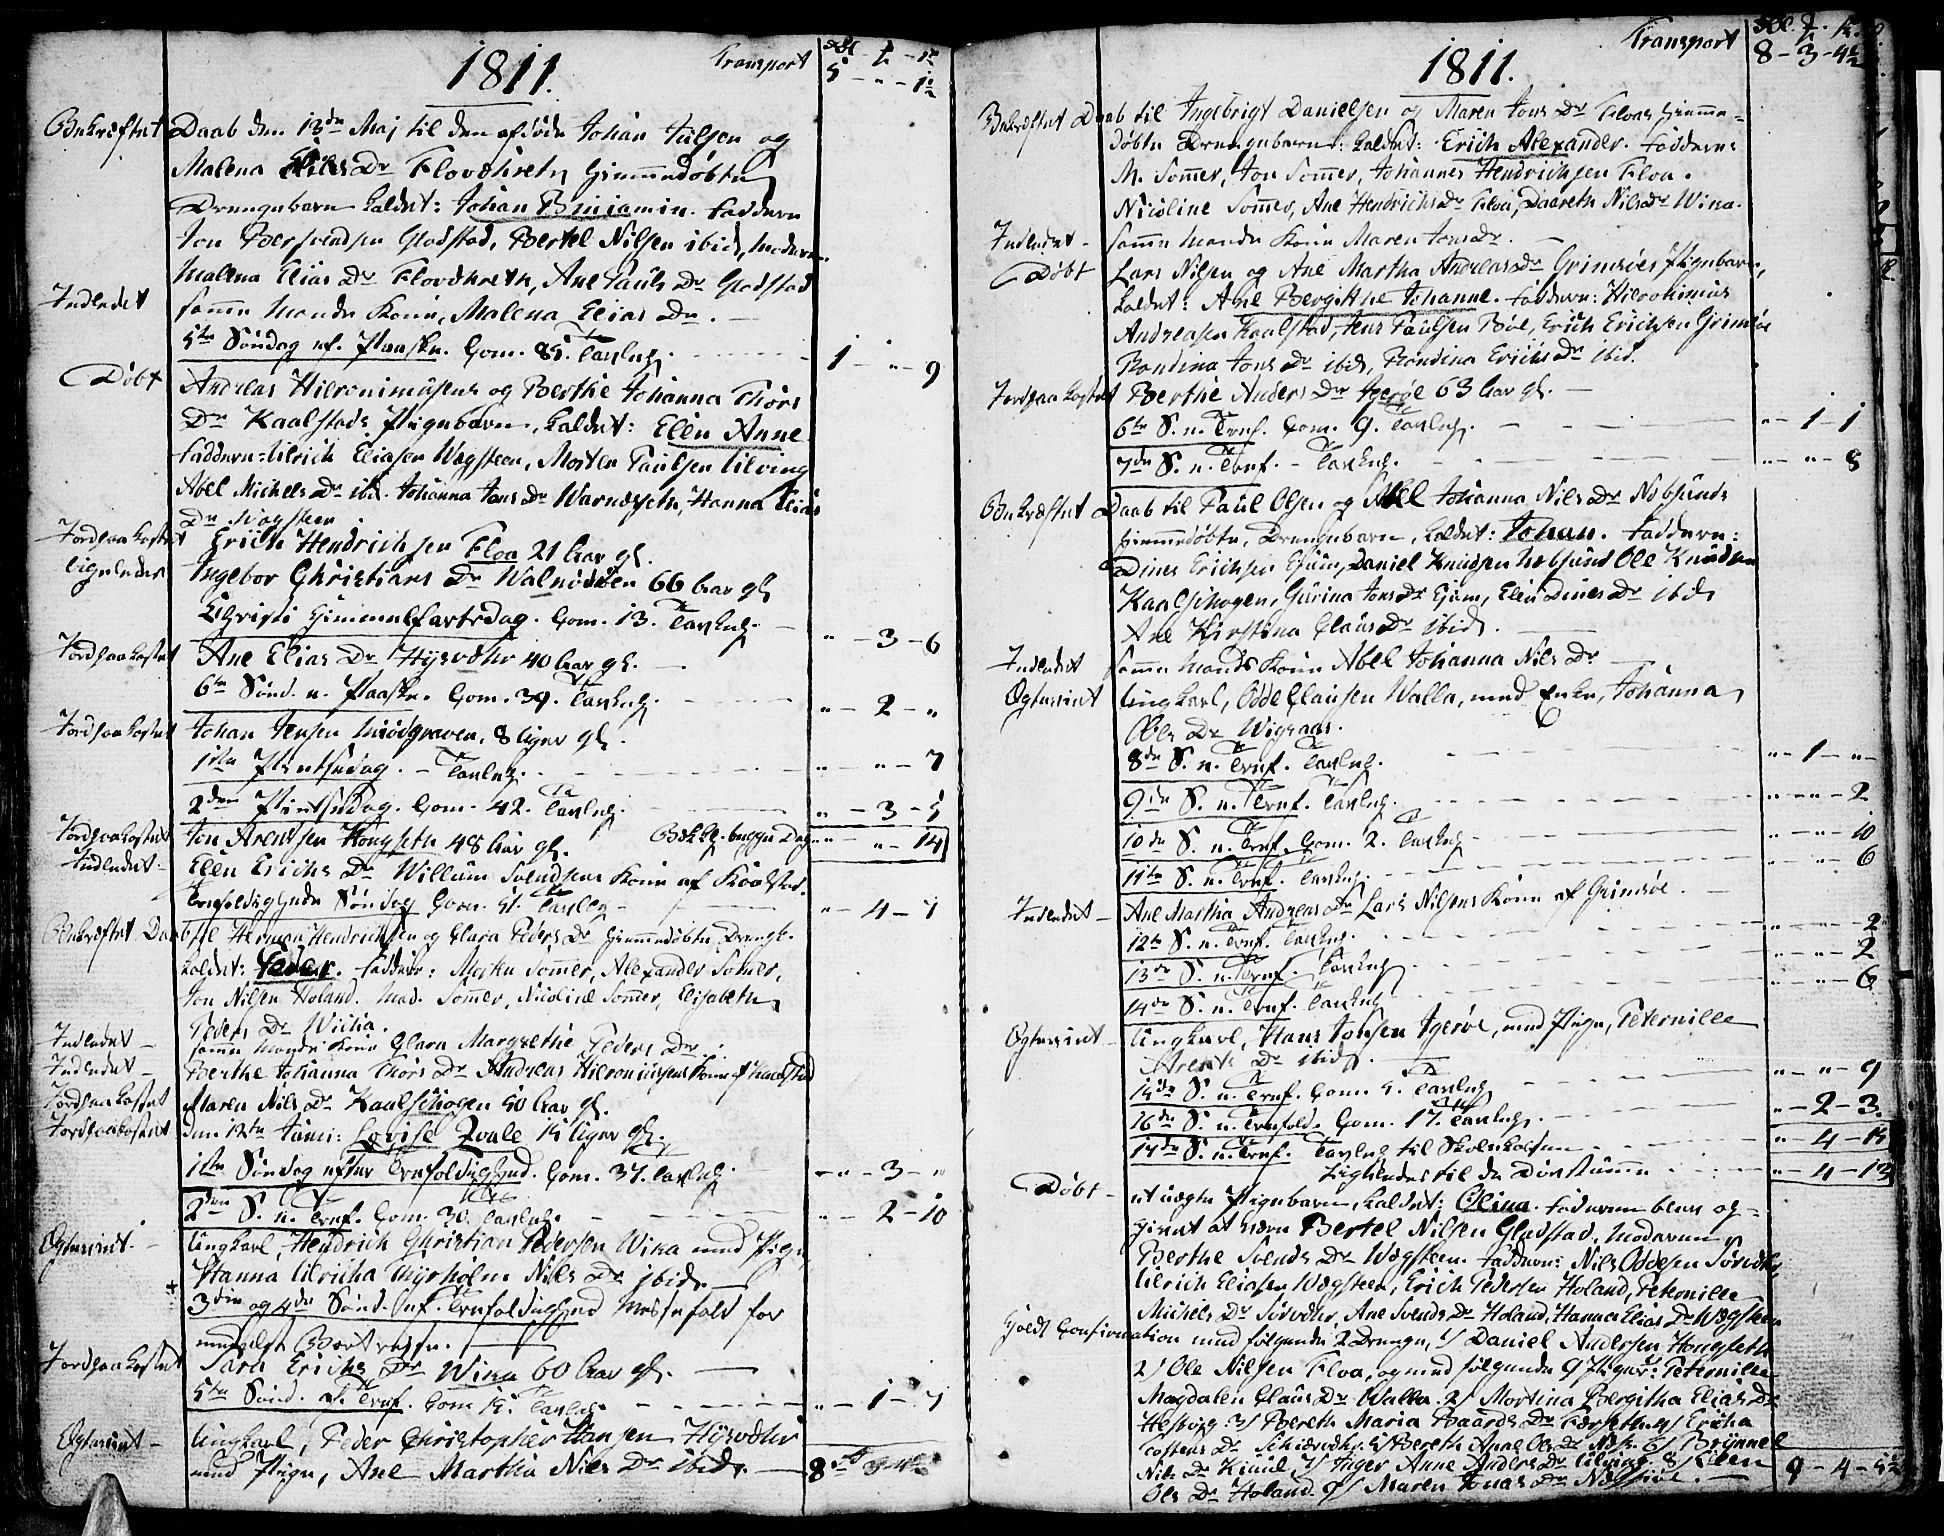 1811. Transport
5 - " - 1 1/2
Bekræftet Daab den 13de Maj til den afdøde Johan Julsen og
Malena Elias Dr Flovdhreth, hiemmedøbte
Drengebarn kaldet: Johan Biniamin. Faddere
Jon Bersvendsen Gladstad, Bertel Nilsen ibid, Moderen
Malena Elias Dr Flovdhreth, Ane Pauls Dr Gladstad
Indledet samme Mands Kone, Malena Elias Dr. —
5te Søndag ef. Paaske. Com. 85. Tavlep. 1 - " - 9
Døbt Andreas Hieronimusens og Berthe Johanna Thors
Dr Kaalstads Pigebarn, kaldet: Elen Anne
Faddere: Ulrich Eliasen Wægsteen, Morten Paulsen Ulving
Abel Michels Dr ibid. Johanna Jons Dr Warnæseth, Hanna Elias
Dr Wægsteen
Jordpaakastet Erich Hendrichsen Floa 21 Aar gl.
ligeledes Ingebor Christians Dr 66 Aar gl.
Christi Himmelfartsdag. Com. 13. Tavlep. " - 3 - 6
Jordpaakastet Ane Elias Dr Hysvdhr 40 Aar gl.
6te Sønd. e. Paaske. Com. 39. Tavlep. " - 2 - "
Jordpaakastet Johan Jensen 8 Uger gl.
1ste Pintsedag. - Tavlep. " - " - 7
2den Pintsedag. Com. 42. Tavlep. " - 3 - 5
Jordpaakastet Jon Arentsen Hongseth 48 Aar gl. " - " - 14
Indledet - Elen Erichs Dr Willum Svendsens Kone af Kaalstad.
Trefoldigheds Søndag Com. 51. Tavlep. " - 4 - 7
Bekræftet Daab til Herman Hendrichsen og Clara Peders Dr hiemmedøbte Drengb.
kaldet: Peder. Faddere: Morten Sommer, Alexander Sommer,
Jon Nilsen Holand. Mad. Sommer, Nicoline Sommer, Elisabeth
Peders Dr Wicha.
Indledet - samme Mands Kone Clara Margrethe Peders Dr.
Indledet - Berthe Johanna Thors Dr Andreas Hieronimusens Kone af Kaalstad
Jordpaakastet Maren Nils Dr Kaalschogen 50 Aar gl.
Jordpaakastet den 12te Juni: Lovise Qvale 15 Uger gl.
1ste Søndag efter Trefoldighed. Com. 37. Tavlep. " - 3 - "
2den S. e. Tref. Com. 30. Tavlep. " - 2 - 10
Egteviet. - Ungkarl, Hendrich Christian Pedersen Wika med Pige
Hanna Ulricha Myrholm Nils Dr ibid. —
3die og 4de Sønd. ef. Trefoldighed Messefald for
Jordpaakastet Sara Erichs Dr Wika 60 Aar gl. —
5te Sønd. ef. Tref. Com 15. Tavlep. " - 1 - 7
Egteviet - Ungkarl, Peder Christopher Hansen Hysvdhr
med Pige, Ane Martha Niels Dr ibid. —
1811. Transport
8 - 3 - 4 1/2
Bekræftet Daab til Ingebrigt Danielsen og Maren Jons Dr Floas hiemme-
døbte Drengebarn: kaldet: Erich Alexander. Faddere:
M. Sommer, Jon Sommer, Johannes Hendrichsen Floa.
Nicoline Sommer, Ane Hendrichs Dr Floa, Daareth Nils Dr Wika.
Indledet - samme Mands Kone Maren Jons Dr. —
Døbt Lars Nilsen og Ane Martha Andreas Dr Grimsøes Pigebarn,
kaldet: Ane Bergitthe Johanne. Faddere: Hieronimus
Andreasen Kaalstad, Jens Paulsen Bøe, Erich Erichsen Grimsøe
Rondina Jons Dr ibid, Rondina Erichs Dr ibid.
Jordpaakastet Berthe Anders Dr Igerøe 63 Aar gl. —
6te S. e. Tref. Com. 9. Tavlep. " - 1 - 1
7de S. e. Tref. - Tavlep. " - " - 8
Bekræftet Daab til Paul Olsen og Abel Johanna Nils Dr Nebsunds
hiemmedøbte, Drengebarn, kaldet: Johan. Faddere:
Dines Erichsen Ejum, Daniel Knudsen Nebsund Ole Knudsen
Kaalschogen, Gurina Jons Dr Ejum, Elen Dines Dr ibid
Ane Kirstina Claus Dr ibid.
Indledet samme Mands Kone Abel Johanna Nils Dr —
Egteviet Ungkarl, Odde Clausen Walla, med Enke, Johanna
Ols Dr Wigaas.
8de S. e. Tref. Tavlep. " - 1 - "
9de S. e. Tref. Tavlep. " - " - 2
10de S. e. Tref. Com. 2. Tavlep. " - " - 10
11te S. e. Tref. Tavlep. " - " - 6
Indledet - Ane Martha Andreas Dr Lars Nilsens Kone af Grimsøe. —
12te S. e. Tref. Tavlep. " - " - 2
13de S. e. Tref. Tavlep. " - " - 2
14de S. e. Tref. Tavlep. " - " - 6
Egteviet - Ungkarl, Hans Jonsen Igerøe, med Pige, Peternille
Arents Dr ibid. —
15de S. e. Tref. Com. 5. Tavlep. " - " - 9
16de S. e. Trefold. Com. 17. Tavlep. " - 2 - 3.
17de S. e. Tref. Tavlep til Skolekassen " - 4 - 15
Ligeledes til de Døvstumme " - 4 - 13
Døbt - et uægte Pigebarn, kaldet: Olina. Faderen blev op-
givet at være Bertel Nilsen Gladstad, Moderen
Berthe Svends Dr Wægsteen. Faddere: Nils Oddesen Sørvdhr,
Ulrich Eliasen Wægsteen, Erich Pedersen Holand, Peternille
Michels Dr Sørvdhr, Ane Svends Dr Holand, Hanna Elias Dr Wægsteen
Holdt Confirmation med følgende 2 Drenge, 1/ Daniel Andersen Hongseth
2/ Ole Nilsen Floa, og med følgende 9 Piger: Peternille
Magdalen Claus Dr Walla. 2/ Mortina Bergitha Elias Dr
Helborg 3/ Bereth Maria Baards Dr Færseth 4/ Ericha
Tostens Dr 5/ Bereth Anne Ols Dr 6/ Brynnel
Nils Dr 7/ Inger Anne Anders Dr Ulving. 8 Elen
Ols Dr Holand. 9/ Maren Jonas Dr
9 - 4 - 5 1/2